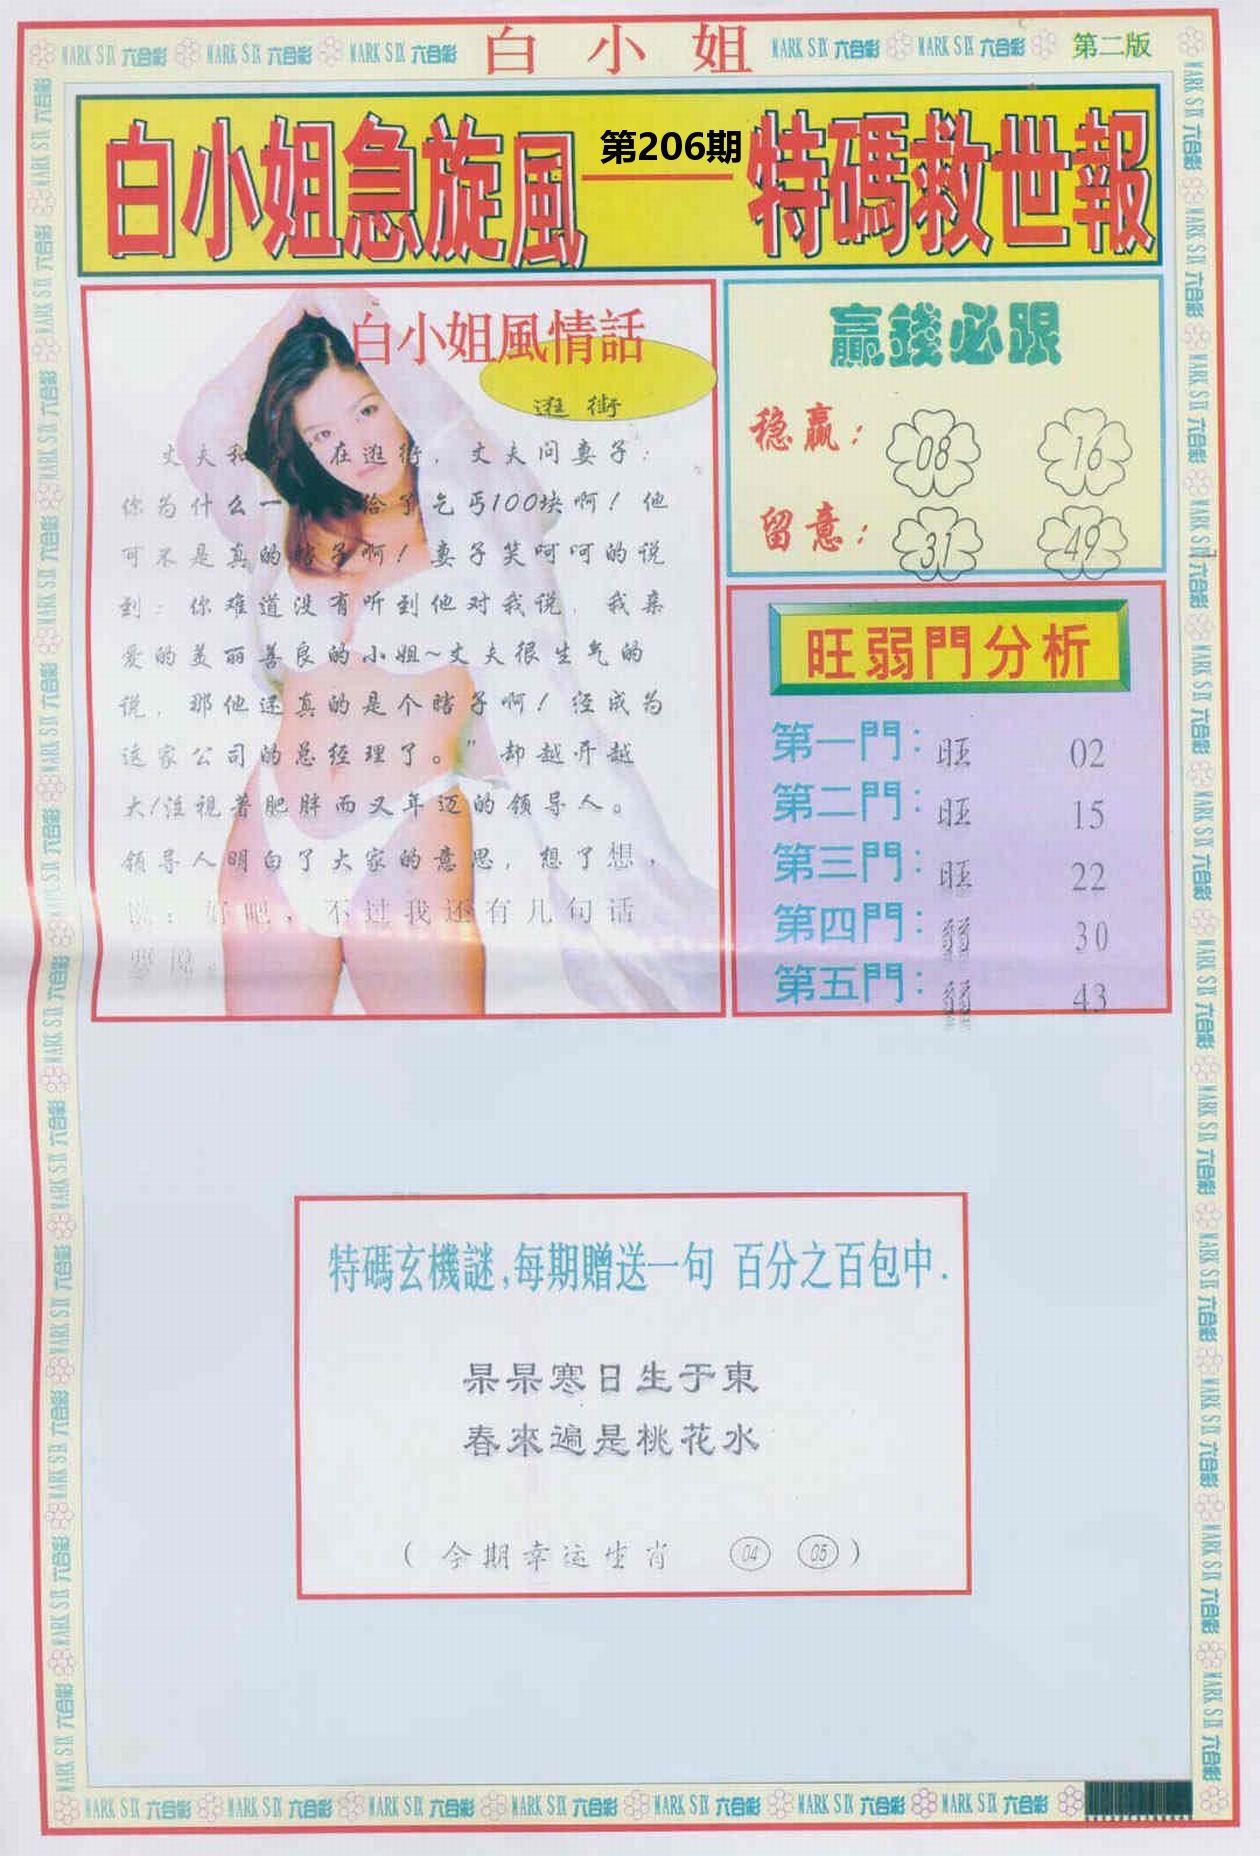 MARK SIX 六合彩 MARK SIX 六合彩 MARK SIX 六合彩 白小姐 MARK SIX 六合彩 MARK SIX 六合彩 第二版
白小姐急旋風——特碼救世報
第206期
白小姐風情話
逛街
丈夫和 在逛街，丈夫问妻子：
你为什么一 给了乞丐100块啊！他
可不是真的瞎子啊！妻子笑呵呵的说
到：你难道没有听到他对我说，我亲
爱的美丽善良的小姐~丈夫很生气的
说，那他还真的是个瞎子啊！经成为
这家公司的总经理了。”却越开越
大!注视着肥胖而又年迈的领导人。
领导人明白了大家的意思，想了想，
说：好吧，不过我还有几句话
赢錢必跟
稳赢： 08 16
留意： 31 49
旺弱門分析
第一門：旺 02
第二門：旺 15
第三門：旺 22
第四門：弱 30
第五門：弱 43
特碼玄機謎,每期贈送一句 百分之百包中.
杲杲寒日生于東
春來遍是桃花水
（今期幸运生肖 04 05）
MARK SIX 六合彩 MARK SIX 六合彩 MARK SIX 六合彩 MARK SIX 六合彩 MARK SIX 六合彩 MARK SIX 六合彩 MARK SIX 六合彩